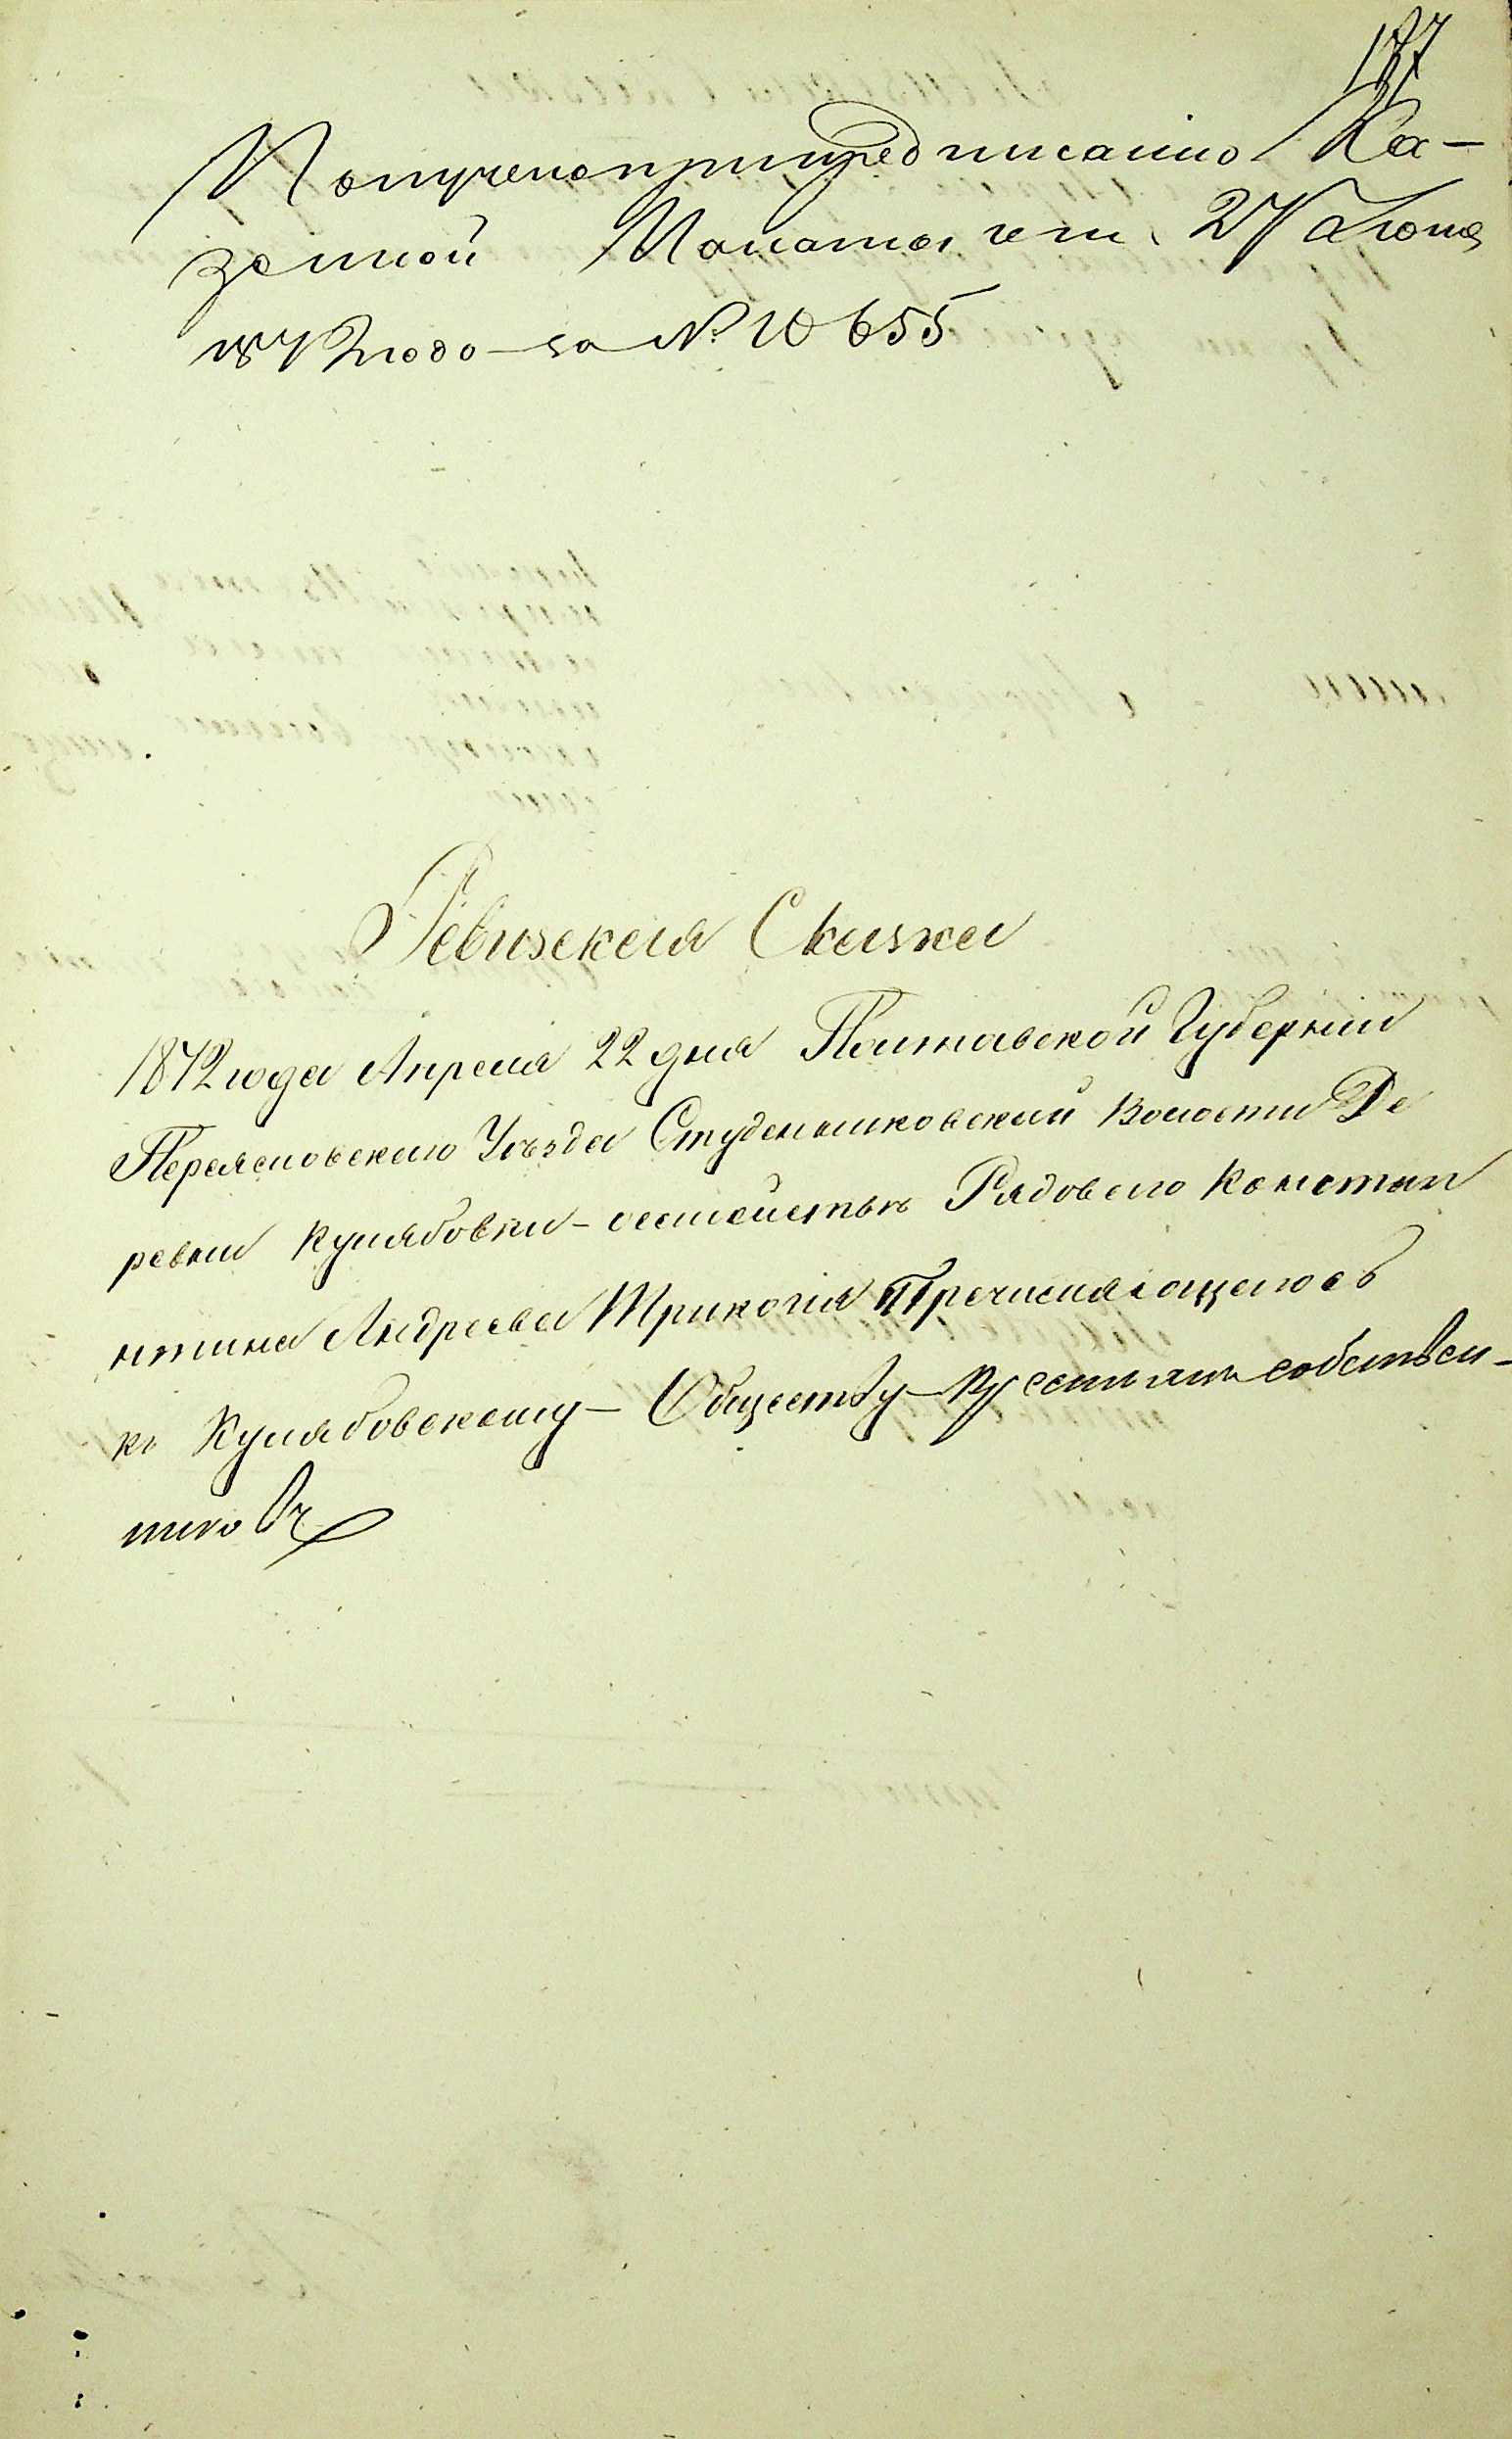 177
Получено при предписании Ка-
зенной Палаты отъ 27 Июня
1872 года за № 10655
Ревизская Сказка
1872 года Апреля 22 дня Полтавской Губернии
Переясловского Уѣзда Студениковский Волости Де
ревни Кулябовки - осемействѣ Рядового Констан
нтина Андреева Трикогля Пречисляющегося
къ Кулябовскому - Обществу - Крестьянъ собствен-
никовъ